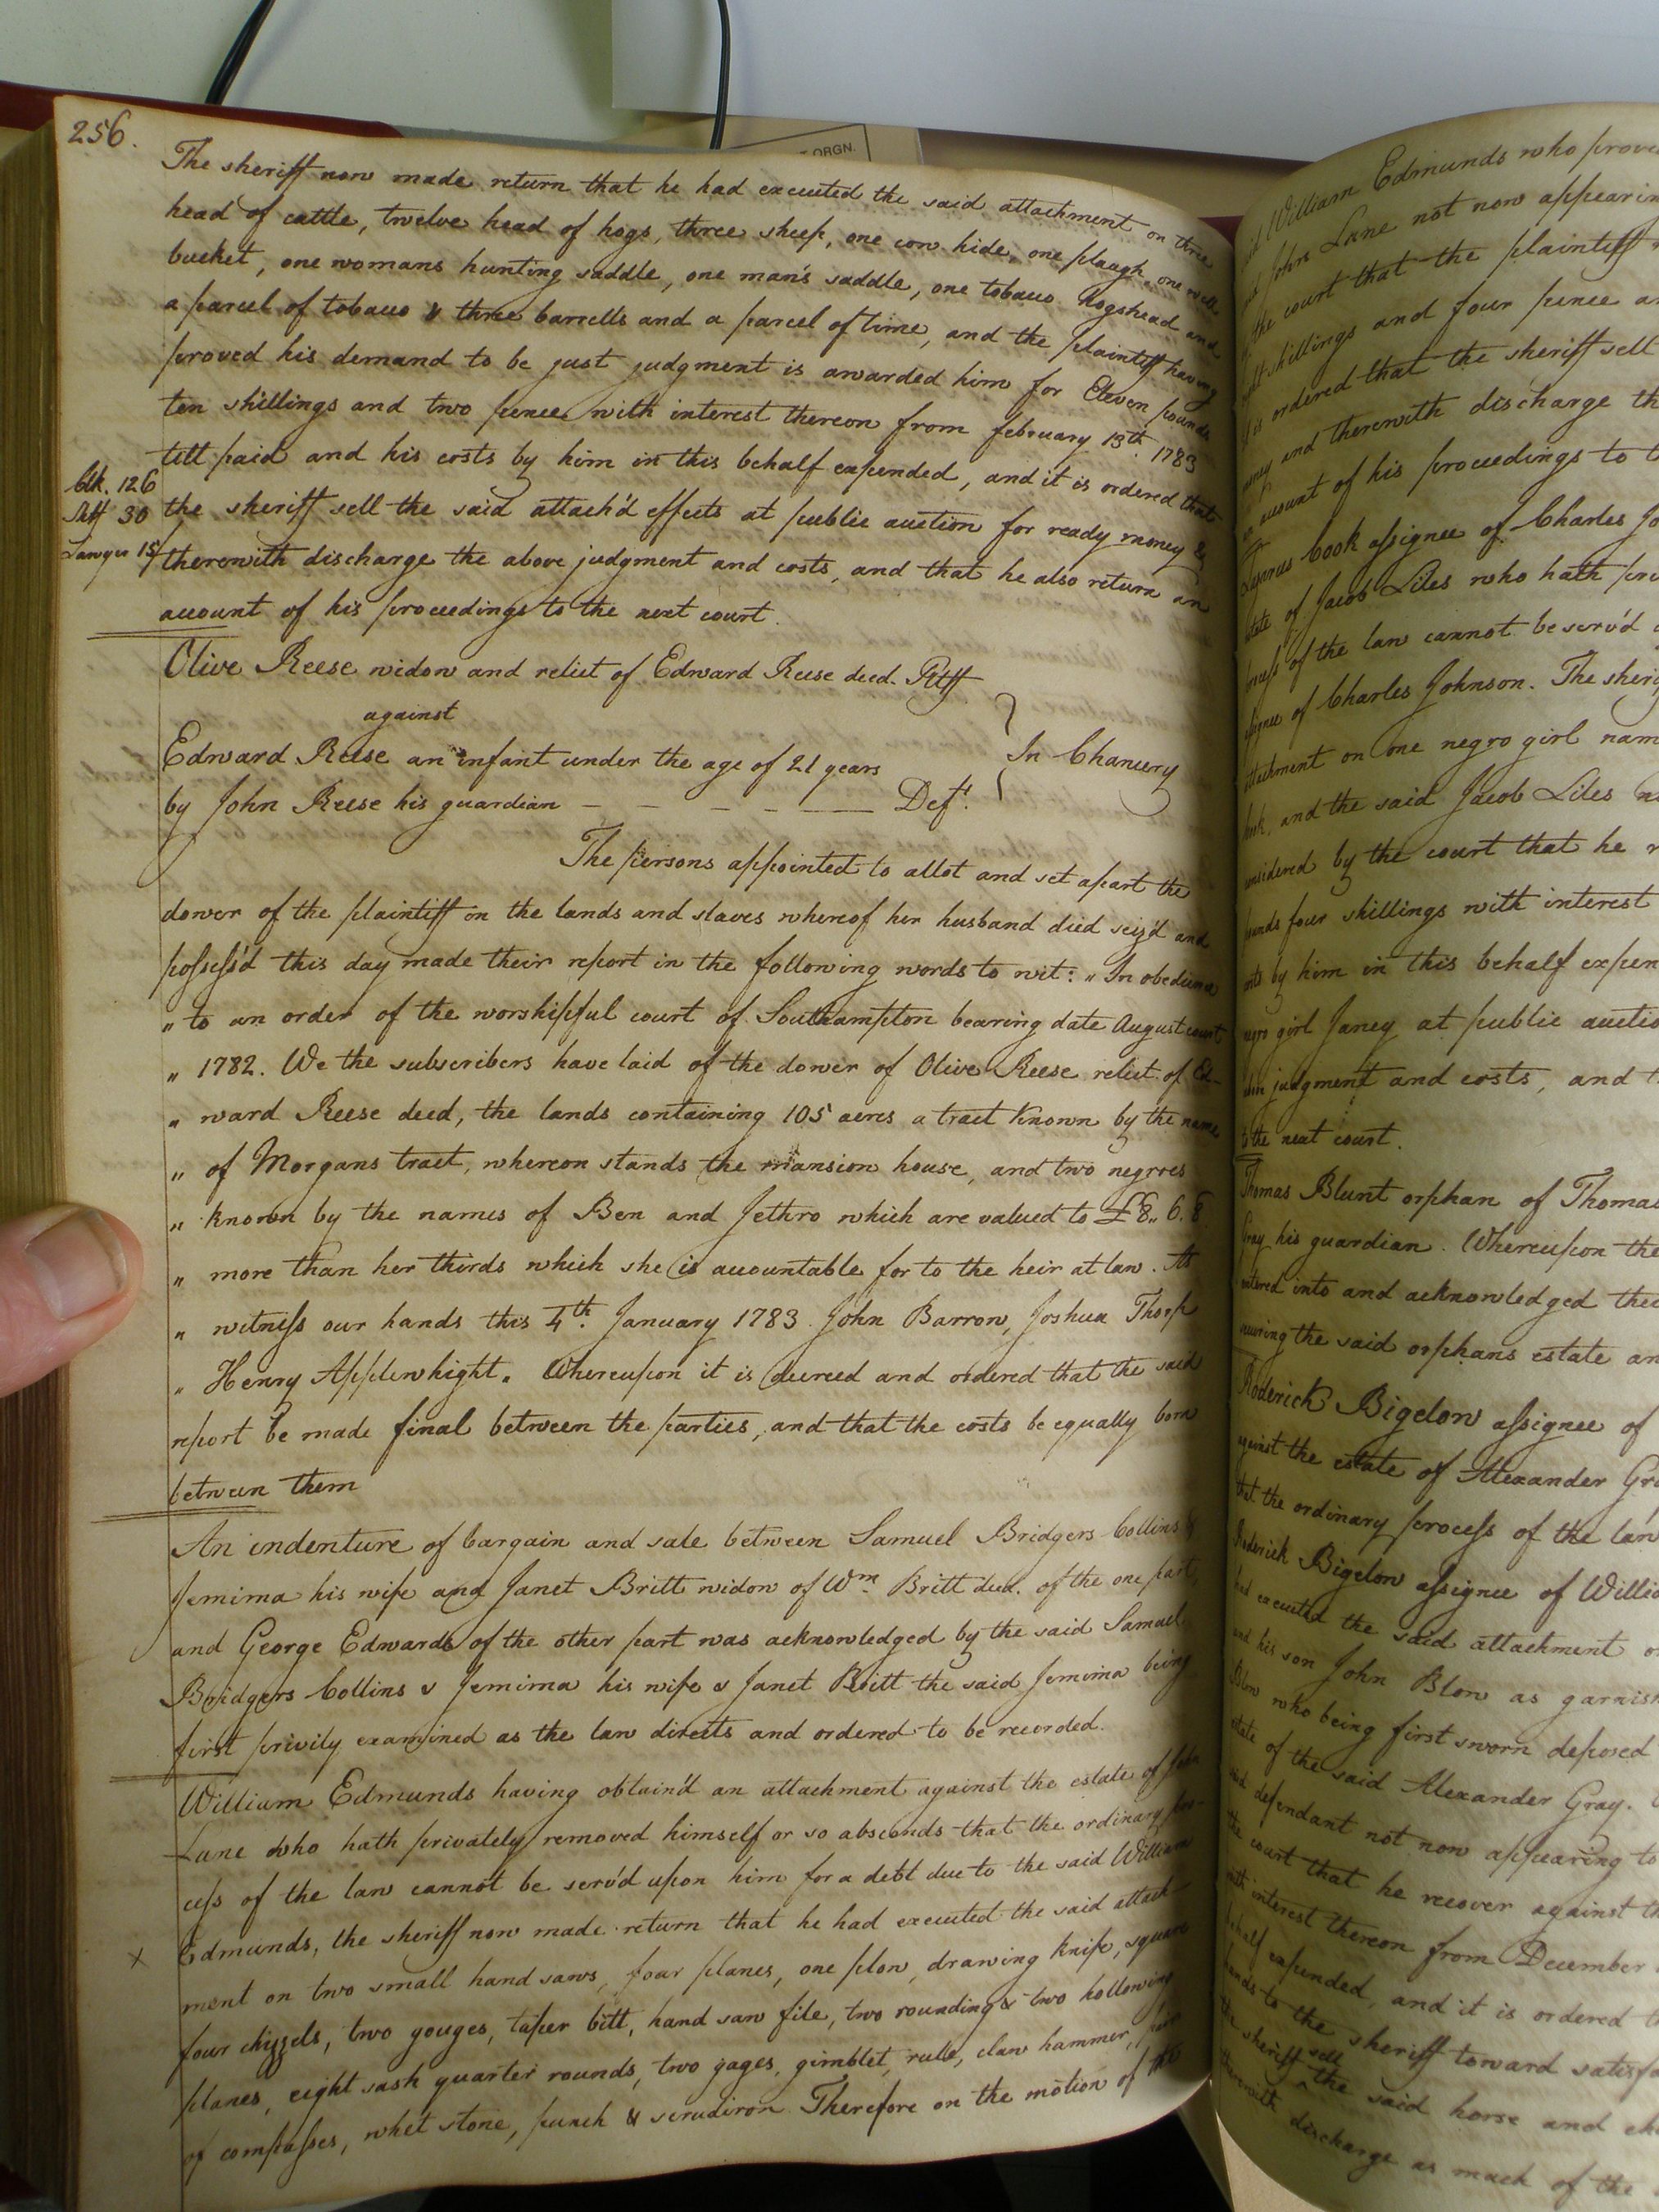 256.
The sheriff now made return that he had executed the said attachment on three
head of cattle, twelve head of hogs, three sheep, one cow hide, one plough, one well
bucket, one womans hunting saddle, one man's saddle, one tobacco hogshead and
a parcel of tobacco & three barrells and a parcel of lime, and the plaintiff having
proved his demand to be just judgment is awarded him for Eleven pounds
ten shillings and two pence with interest thereon from february 13th. 1783
till paid and his costs by him in this behalf expended, and it is ordered that
Clk. 126
Shff 30
Lawyer 15/
the sheriff sell the said attach'd effects at public auction for ready money &
therewith discharge the above judgment and costs, and that he also return an
account of his proceedings to the next court.
Olive Reese widow and relict of Edward Reese deed. Pltff
against
In Chancery
Edward Reese an infant under the age of 21 years
by John Reese his guardian — — — — — Deft.
The persons appointed to allot and set apart the
dower of the plaintiff in the lands and slaves whereof her husband died seiz'd and
possess'd this day made their report in the following words to wit: „ In obedience
„ to an order of the worshipful court of Southampton bearing date August court
„ 1782. We the subscribers have laid of the dower of Olive Reese relict of Ed-
„ ward Reese deed, the lands containing 105 acres a tract known by the name
„ of Morgans tract, whereon stands the mansion house, and two negroes
„ known by the names of Ben and Jethro which are valued to £8„ 6. 8
„ more than her thirds which she is accountable for to the heir at law. As
„ witness our hands this 4th. January 1783. John Barrow, Joshua Thorp
„ Henry Applewhight. Whereupon it is decreed and ordered that the said
report be made final between the parties, and that the costs be equally born
between them
An indenture of bargain and sale between Samuel Bridgers Collins &
Jemima his wife and Janet Britt widow of Wm. Britt deed. of the one part,
and George Edwards of the other part was acknowledged by the said Samuel
Bridgers Collins & Jemima his wife & Janet Britt the said Jemima being
first privily examined as the law directs and ordered to be recorded.
William Edmunds having obtain'd an attachment against the estate of John
Lane who hath privately removed himself or so absconds that the ordinary pro-
cess of the law cannot be serv'd upon him for a debt due to the said William
x Edmunds, the sheriff now made return that he had executed the said attach-
ment on two small hand saws, four planes, one plow, drawing knife, square
four chizzels, two gouges, taper bitt, hand saw file, two rounding & two hollowing
planes, eight sash quarter rounds, two gages, gimblet, rule, claw hammer, pair
of compasses, whet stone, punch & scrudiron Therefore on the motion of the
William Edmunds who prov
John Lane not now appearin
the court that the plaintiff
shillings and four pence
is ordered that the sheriff sell
and therewith discharge th
account of his proceedings to t
Lazarus Cook assignee of Charles Jo
of Jacob Liles who hath pro
of the law cannot be serv'd
of Charles Johnson. The sheri
attachment on one negro girl nam
and the said Jacob Liles
considered by the court that he
four shillings with interest
by him in this behalf expen
girl Janey at public auctio
judgment and costs, and
to the next court.
Thomas Blunt orphan of Thomas
Gray his guardian. Whereupon the
entered into and acknowledged thei
the said orphans estate an
Roderick Bigelow assignee of
against the estate of Alexander Gra
that the ordinary process of the law
Roderick Bigelow assignee of Willia
had executed the said attachment o
and his son John Blow as garnish
Blow who being first sworn deposed
estate of the said Alexander Gray.
said defendant not now appearing to
the court that he recover against th
with interest thereon from December
behalf expended, and it is ordered t
hands to the sheriff toward satisfa
the sheriff sell the said horse and
therewith discharge as much of the
ORGN.